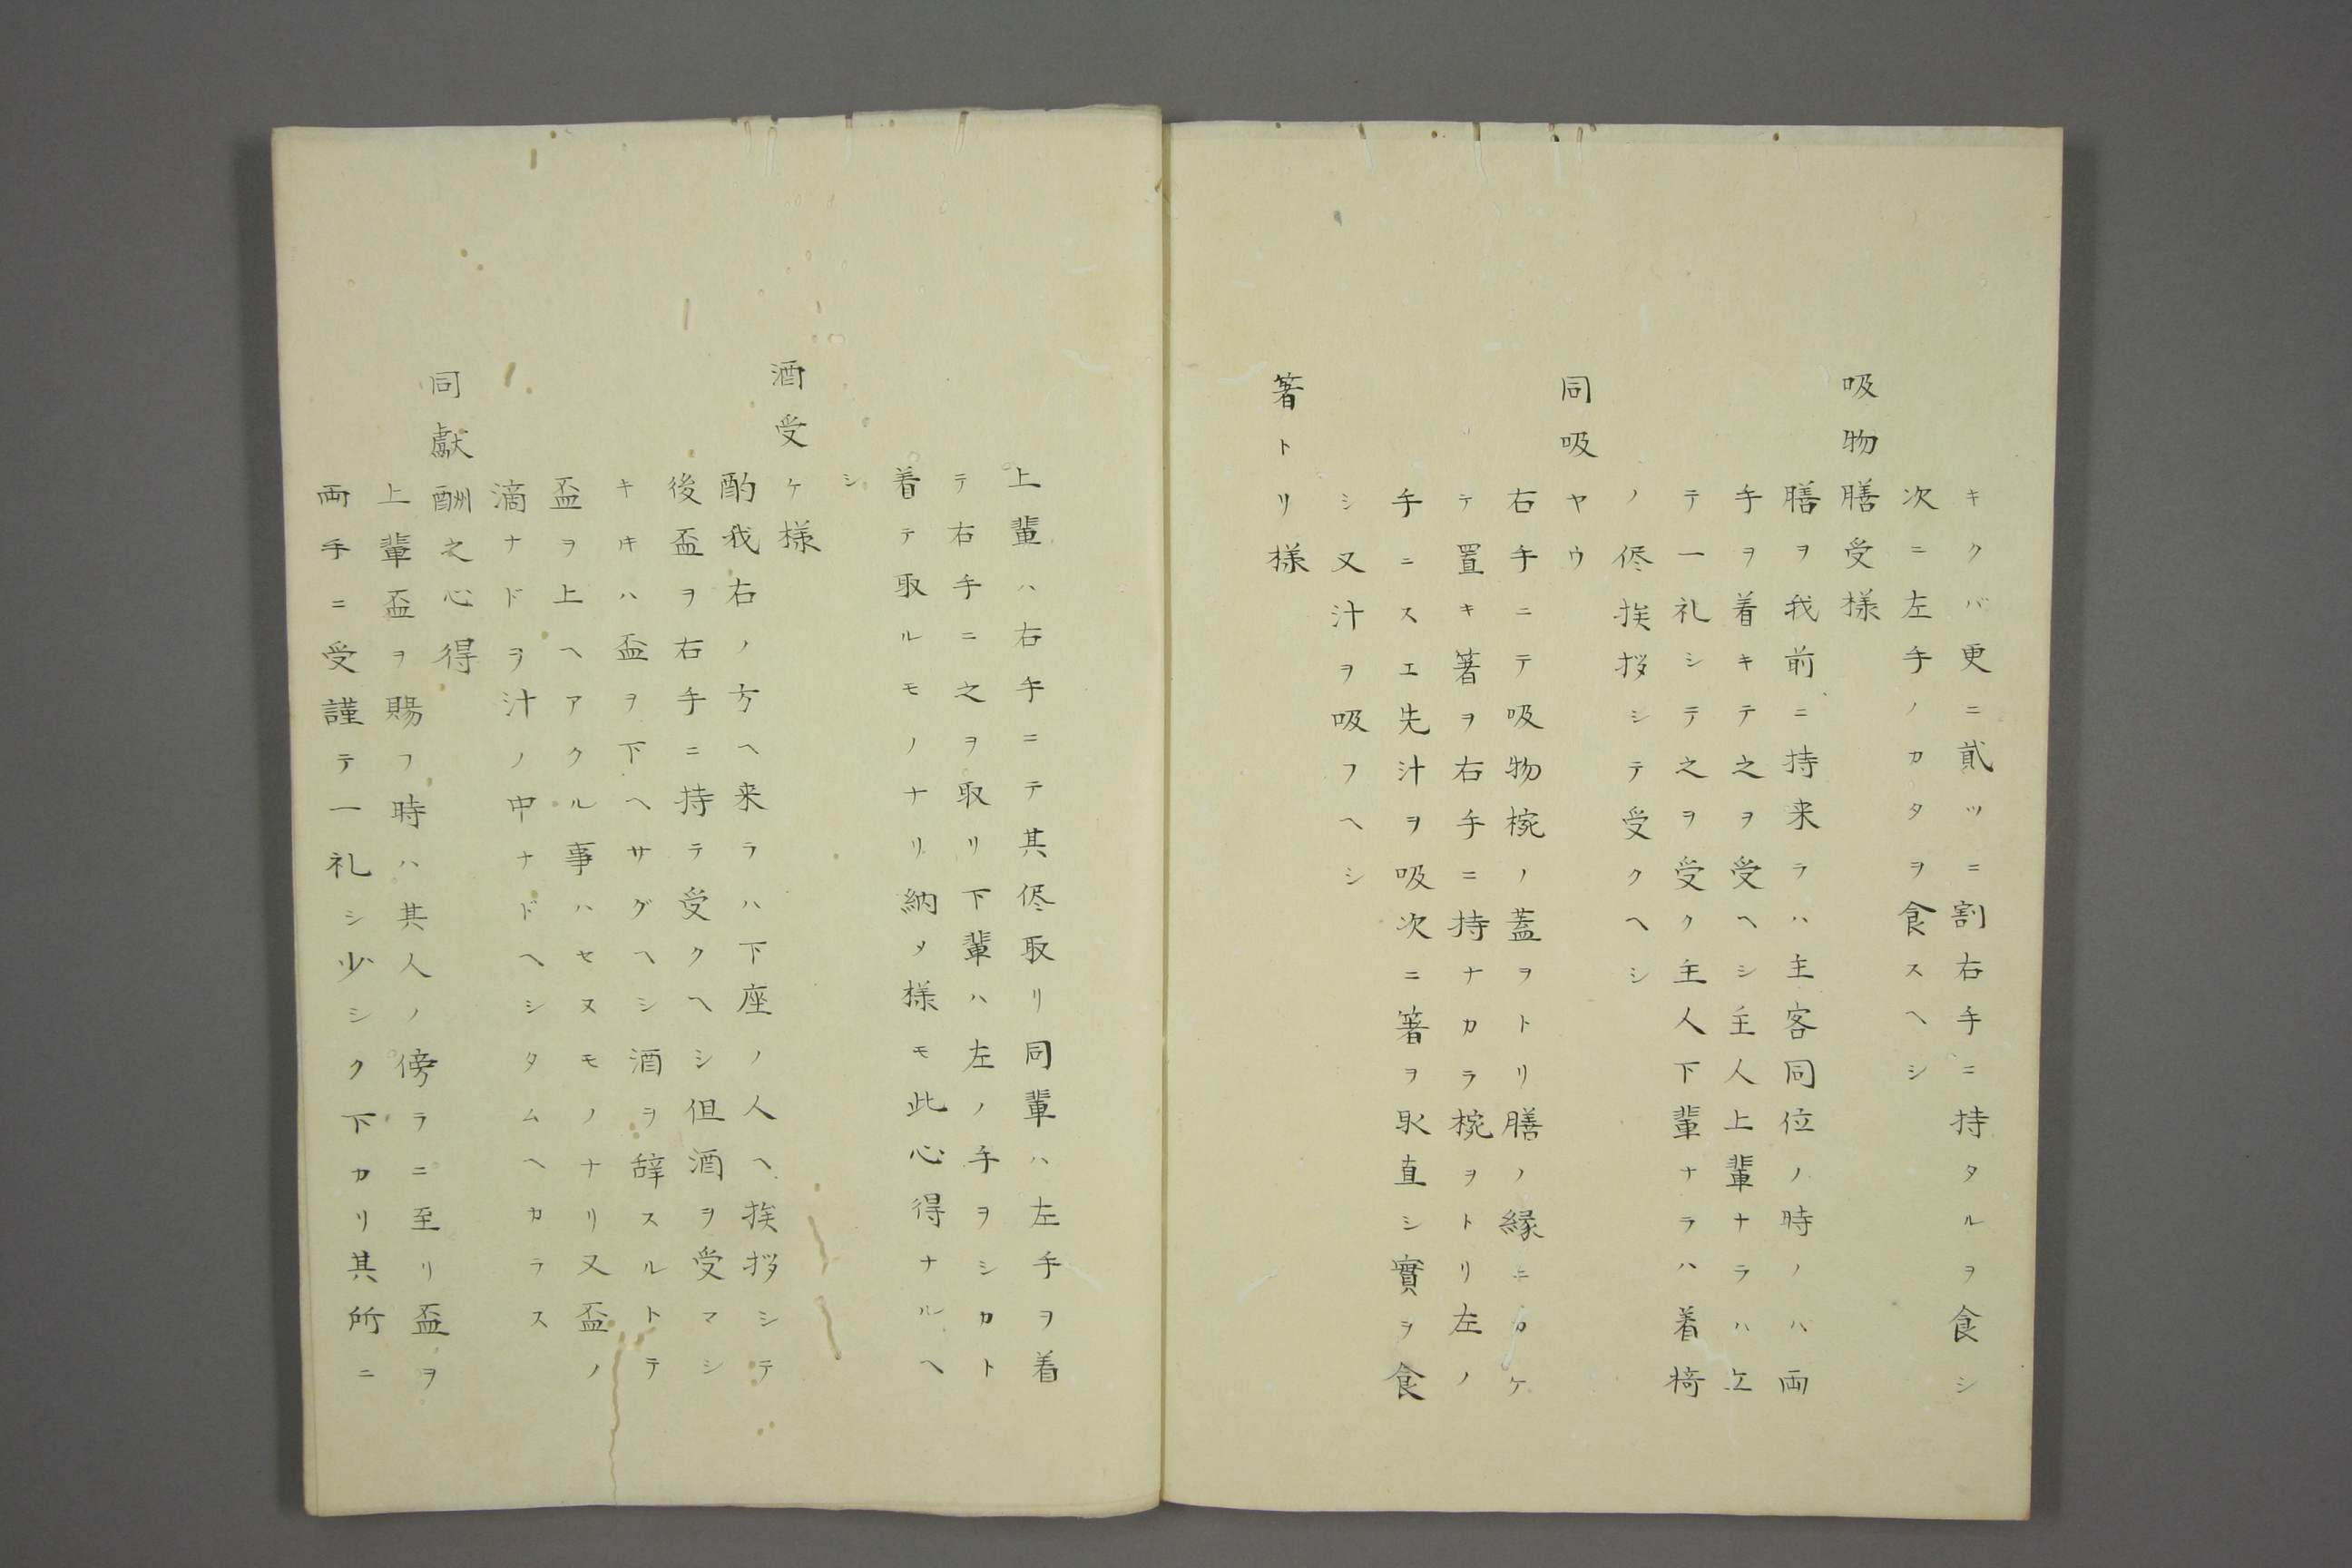 キクバ更ニ貳ツニ割右手ニ持タルヲ食シ
次ニ左手ノカタヲ食スヘシ
吸物膳受様
膳ヲ我前ニ持来ラハ主客同位ノ時ノハ両
手ヲ着キテ之ヲ受ヘシ主人上輩ナラハ立
テ一礼シテ之ヲ受ク主人下輩ナラハ着椅
ノ侭挨拶シテ受クヘシ
同吸ヤウ
右手ニテ吸物椀ノ蓋ヲトリ膳ノ縁ニカケ
テ置キ箸ヲ右手ニ持ナカラ椀ヲトリ左ノ
手ニスエ先汁ヲ吸次ニ箸ヲ取直シ實ヲ食
シ又汁ヲ吸フヘシ
箸トリ様
上輩ハ右手ニテ其侭取リ同輩ハ左手ヲ着
テ右手ニ之ヲ取リ下輩ハ左ノ手ヲシカト
着テ取ルモノナリ納メ様モ此心得ナルヘ
シ
酒受ケ様
酌我右ノ方ヘ来ラハ下座ノ人ヘ挨拶シテ
後盃ヲ右手ニ持テ受クヘシ但酒ヲ受マシ
キキハ盃ヲ下ヘサグヘシ酒ヲ辞スルトテ
盃ヲ上ヘアクル事ハセヌモノナリ又盃ノ
滴ナドヲ汁ノ中ナドヘシタムヘカラス
同獻酬之心得
上輩盃ヲ賜フ時ハ其人ノ傍ラニ至リ盃ヲ
両手ニ受謹テ一礼シ少シク下カリ其所ニ